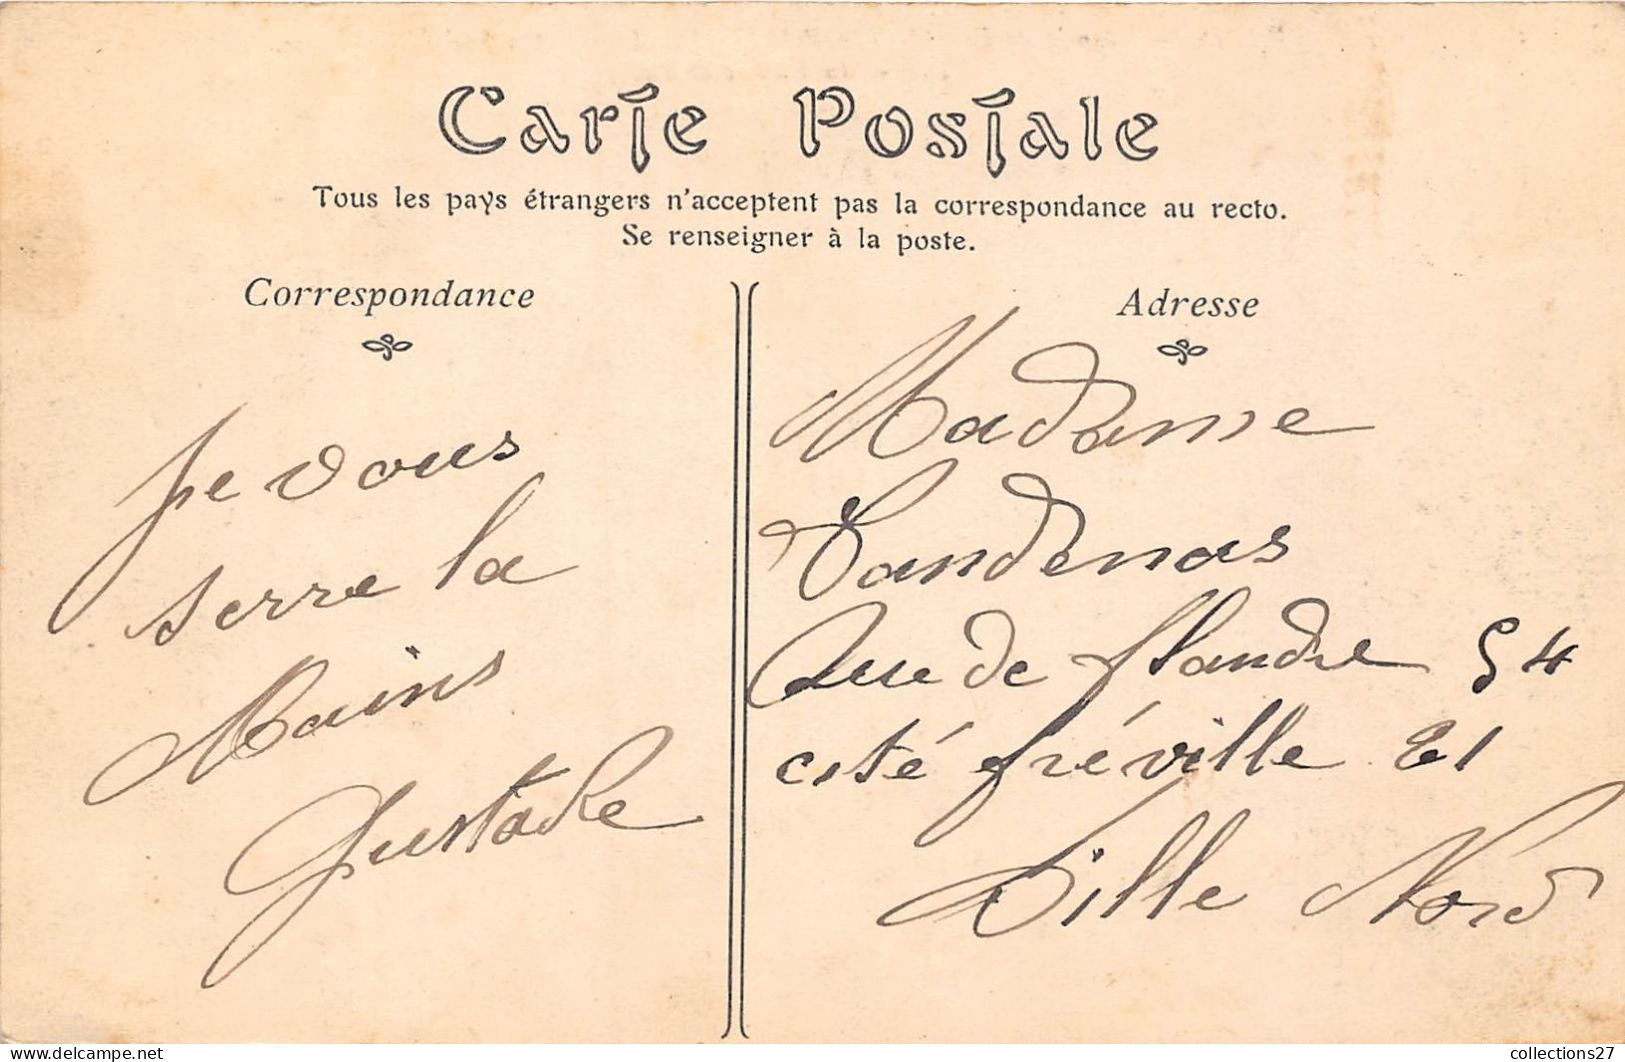 Carte Postale
Tous les pays étrangers n'acceptent pas la correspondance au recto.
Se renseigner à la poste.
Correspondance
je vous
serre la
Mains
Gustave
Adresse
Madame
Vandenas
Rue de flandre 54
cité fréville 21
Lille Nord
delcampe.net
collections27